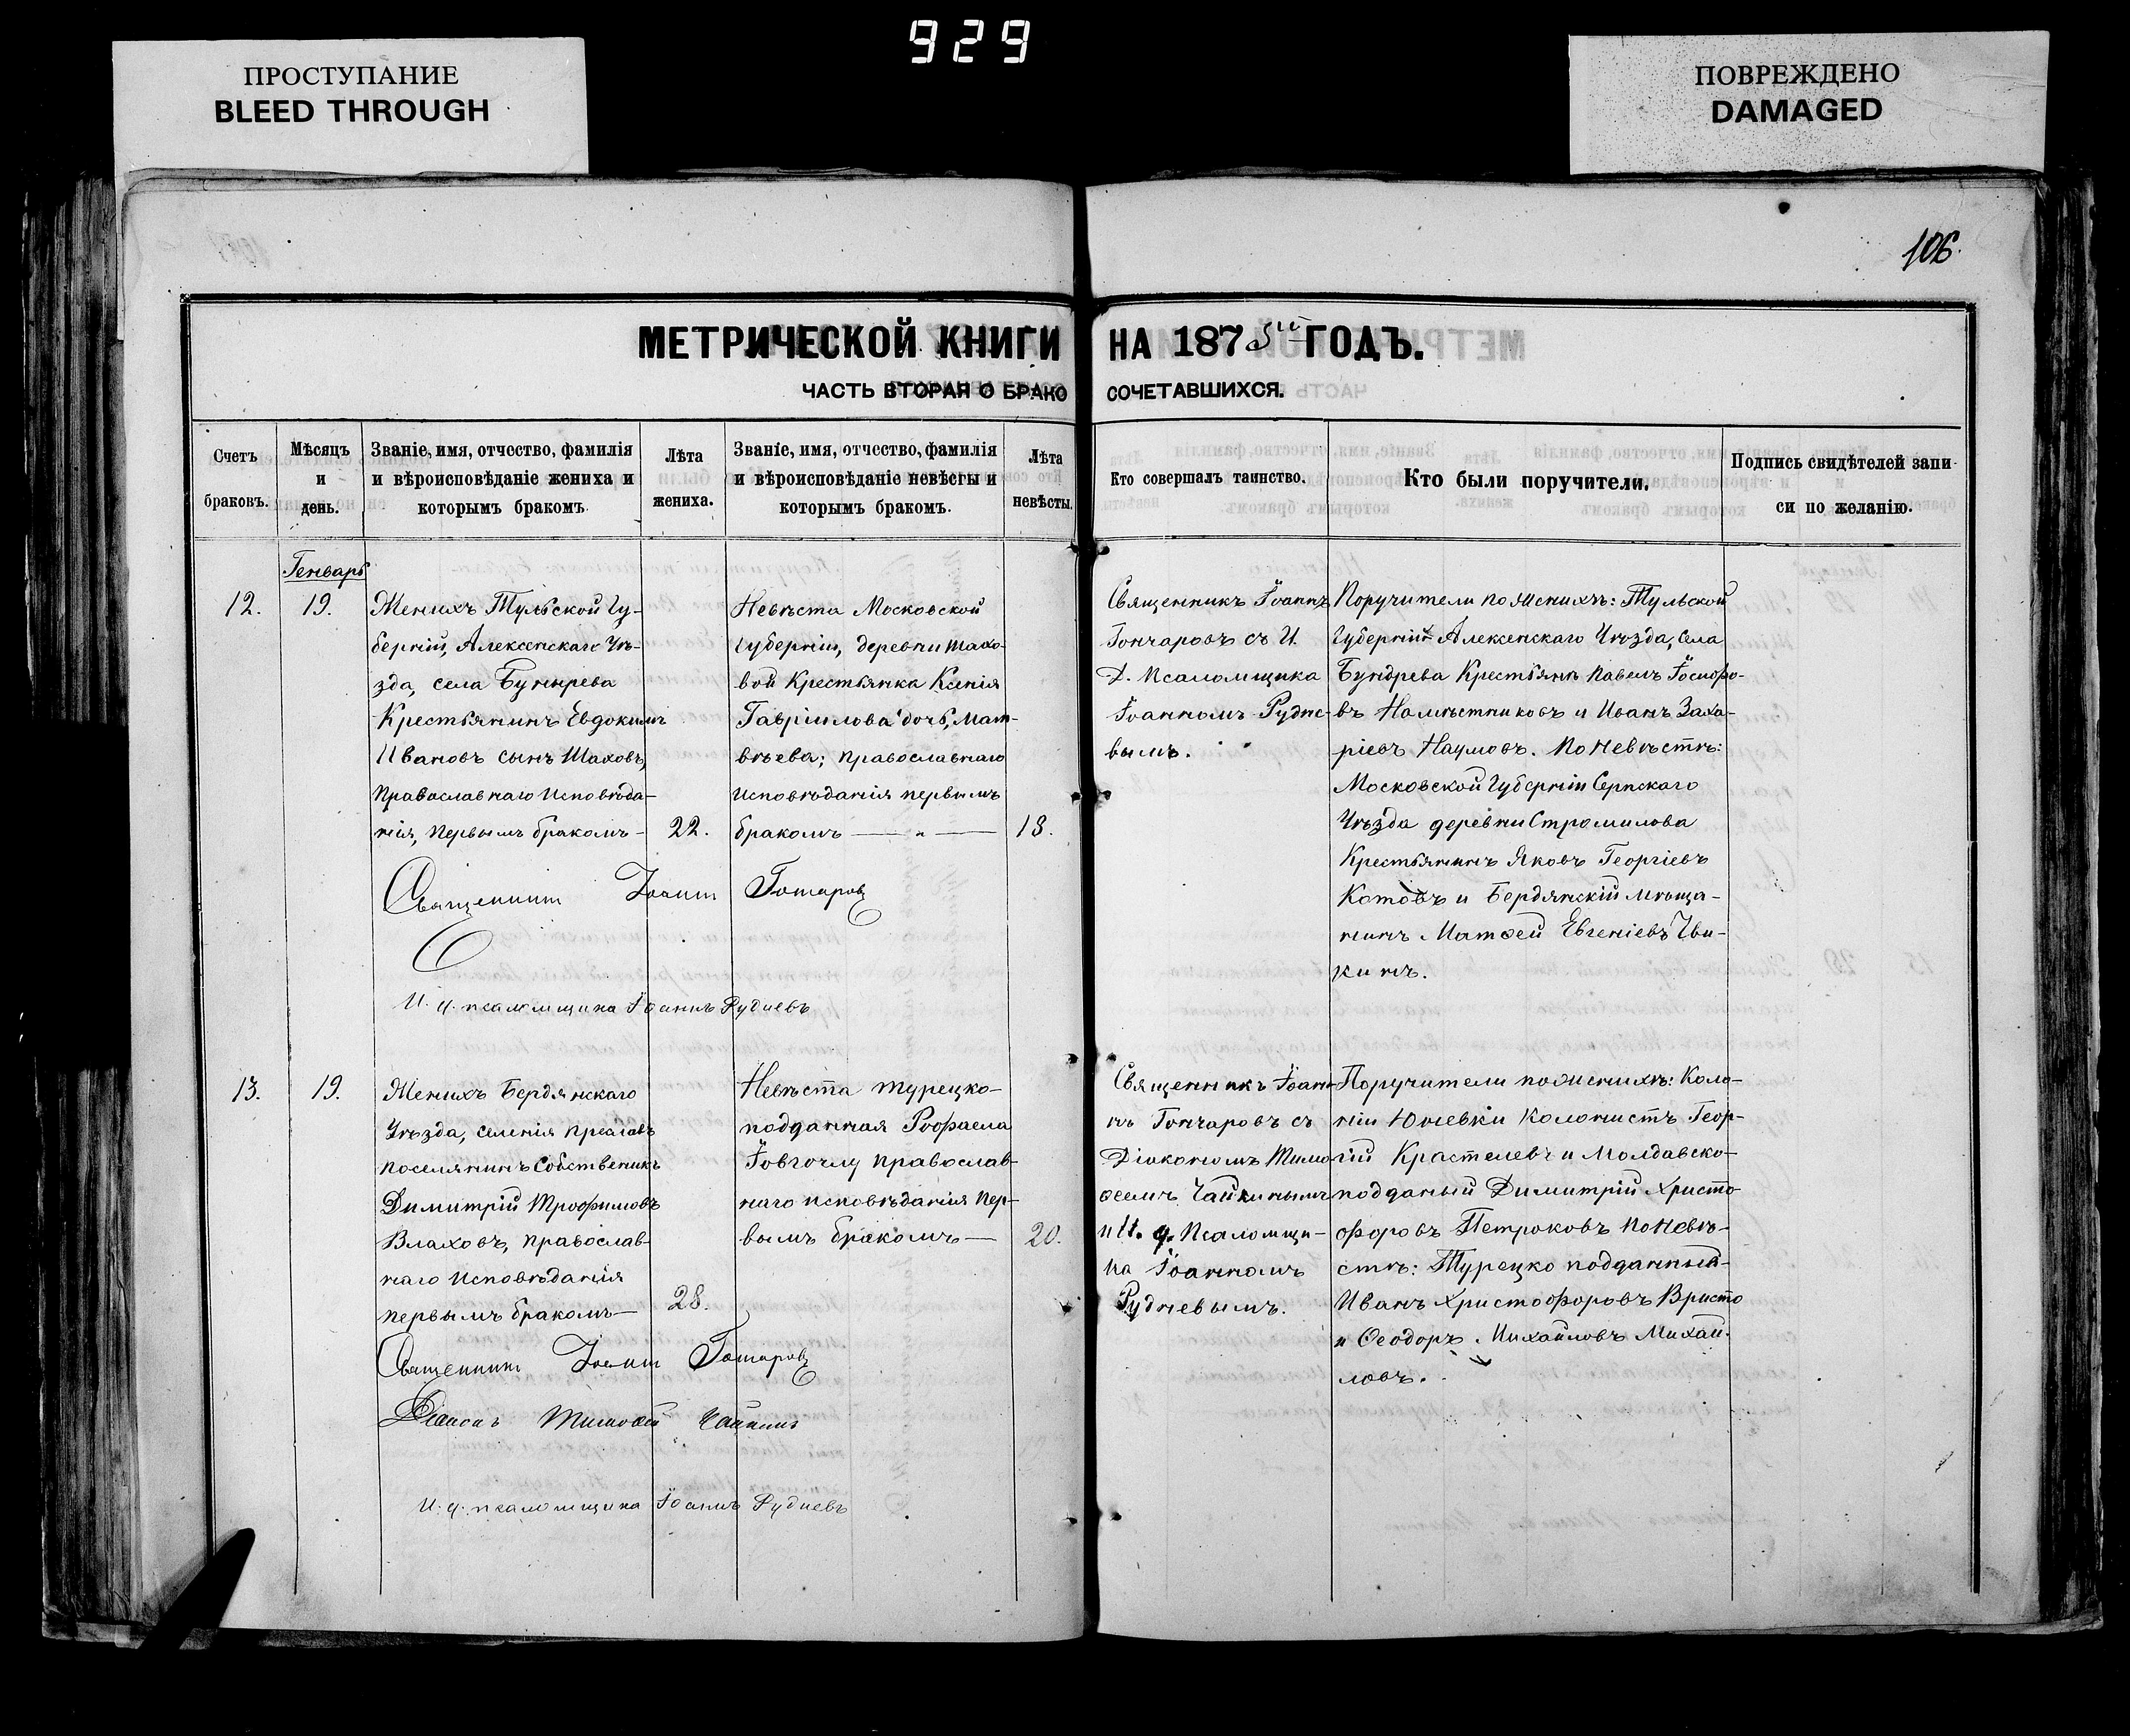 929
ПРОСТУПАНИЕ
BLEED THROUGH
ПОВРЕЖДЕНО
DAMAGED
106.
МЕТРИЧЕСКОЙ КНИГИ НА 1875й ГОДЪ.
ЧАСТЬ ВТОРАЯ О БРАКОСОЧЕТАВШИХСЯ.
Счетъ
браковъ.
Мѣсяцъ
и
день.
Званіе, имя, отчество, фамилія
и вѣроисповѣданіе жениха и
которымъ бракомъ
Лѣта
жениха.
Званіе, имя, отчество, фамилія
и вѣроисповѣданіе невѣсты и
которымъ бракомъ.
Лѣта
невѣсты.
Кто совершалъ таинство.
Кто были поручители.
Подпись свидѣтелей запи-
си по желанію.
Генварь
12.
19.
Женихъ Тульской Гу-
берніи, Алексенскаго Уѣ-
зда, села
Крестьянинъ Евдокимъ
Ивановъ сынъ Шаховъ,
Православнаго Исповѣда-
нія, первымъ бракомъ-
22.
Невѣста Московской
Губерніи, деревни Шахо-
вой Крестьянка Ксенія
Гавріилова дочь, Мат-
вѣева; православнаго
Исповѣданія первымъ
бракомъ — " —
18.
Священникъ Іоаннъ
Гончаровъ съ И.
Д. Псаломщика
Іоанномъ Рудне-
вымъ.
Поручители по женихѣ: Тульской
Губерніи Алексенскаго Уѣзда, села
Бундрева Крестьянъ Павелъ Іосифо-
въ Намѣстниковъ и Иванъ Заха-
ріевъ Наумовъ. По Невѣстѣ:
Московской Губерніи Серпскаго
Уѣзда деревни Стромилова
Крестьянинъ Яковъ Георгіевъ
Котовъ и Бердянскій мѣща-
нинъ Матѳей Евгеніевъ
кинъ.
Священникъ Іоаннъ Гончаровъ
И. д. псаломщика Іоаннъ Рудневъ
13.
19.
Женихъ Бердянскаго
Уѣзда, селенія Преславъ
поселянинъ Собственикъ
Димитрій Трофимовъ
Влаховъ, православ-
наго Исповѣданія
первымъ бракомъ—
28.
Невѣста турецко-
подданная Рофаела
Іовгочлу православ-
наго исповѣданія пер-
вымъ бракомъ—
20.
Священникъ Іоан-
нъ Гончаровъ съ
Діакономъ Тимо-
ѳеемъ Чайкинымъ
и И. д. Псаломщи-
ка Іоанномъ
Рудневымъ.
Поручители по женихѣ: Коло-
ніи Юлевки Колонистъ Геор-
гій Крастелевъ и Молдавско-
подданый Димитрій Христо
форовъ Петроковъ По Невѣ-
стѣ: Турецко подданный
Иванъ Христофоровъ Вристо
и Ѳеодоръ Михайловъ Михай-
ловъ.
Священникъ Іоаннъ Гончаровъ
Діаконъ Тимоѳей Чайкинъ
И. д. псаломщика Іоаннъ Рудневъ